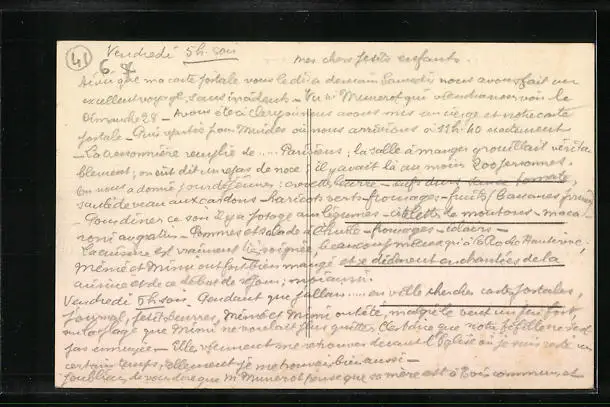 41
Vendredi 5h. soir
6 mes chers petits enfants.
Ainsi que ma carte postale vous le dira demain Samedi nous avons fait un
excellent voyage, sans incidents - Vu Mr Munerot qui viendra nous voir le
Dimanche 28 - avons été à Clery où nous avons mis un cierge et notre carte
postale - Puis repartis pour Muides où nous arrivions à 11h. 40 exactement
- La maisonnière remplie de ..... Parisiens; la salle à manger grouillait vérita-
blement; on eût dit un repas de noce; il y avait là au moins 200 personnes.
On nous a donné pour déjeuner: beurre - œufs durs sauce tomate,
sauté de veau aux cardons - haricots verts - fromages - fruits (bananes
- Pour dîner ce soir il y a potage aux légumes - côtelette de moutons - maca-
roni au gratin - Pommes et salade à l'huile - fromages -
La cuisine est vraiment très soignée, beaucoup mieux qu'à
Mémé et Mimi ont fort bien mangé et se déclarent enchantées de la
cuisine et de ce début de séjour; moi aussi.
Vendredi 5h. soir. Pendant que j'allais .... en ville chercher cartes postales,
journal, petits beurres, Mémé et Mimi ont été, malgré le vent un peu fort,
sur la plage que Mimi ne voulait plus quitter. C'est dire que notre fifille ne s'est
pas ennuyée - Elles viennent me retrouver devant l'Eglise où je suis resté un
certain temps, tellement je me trouvais bien assis -
J'oubliais de vous dire que Mr Munerot pense que sa mère est à et